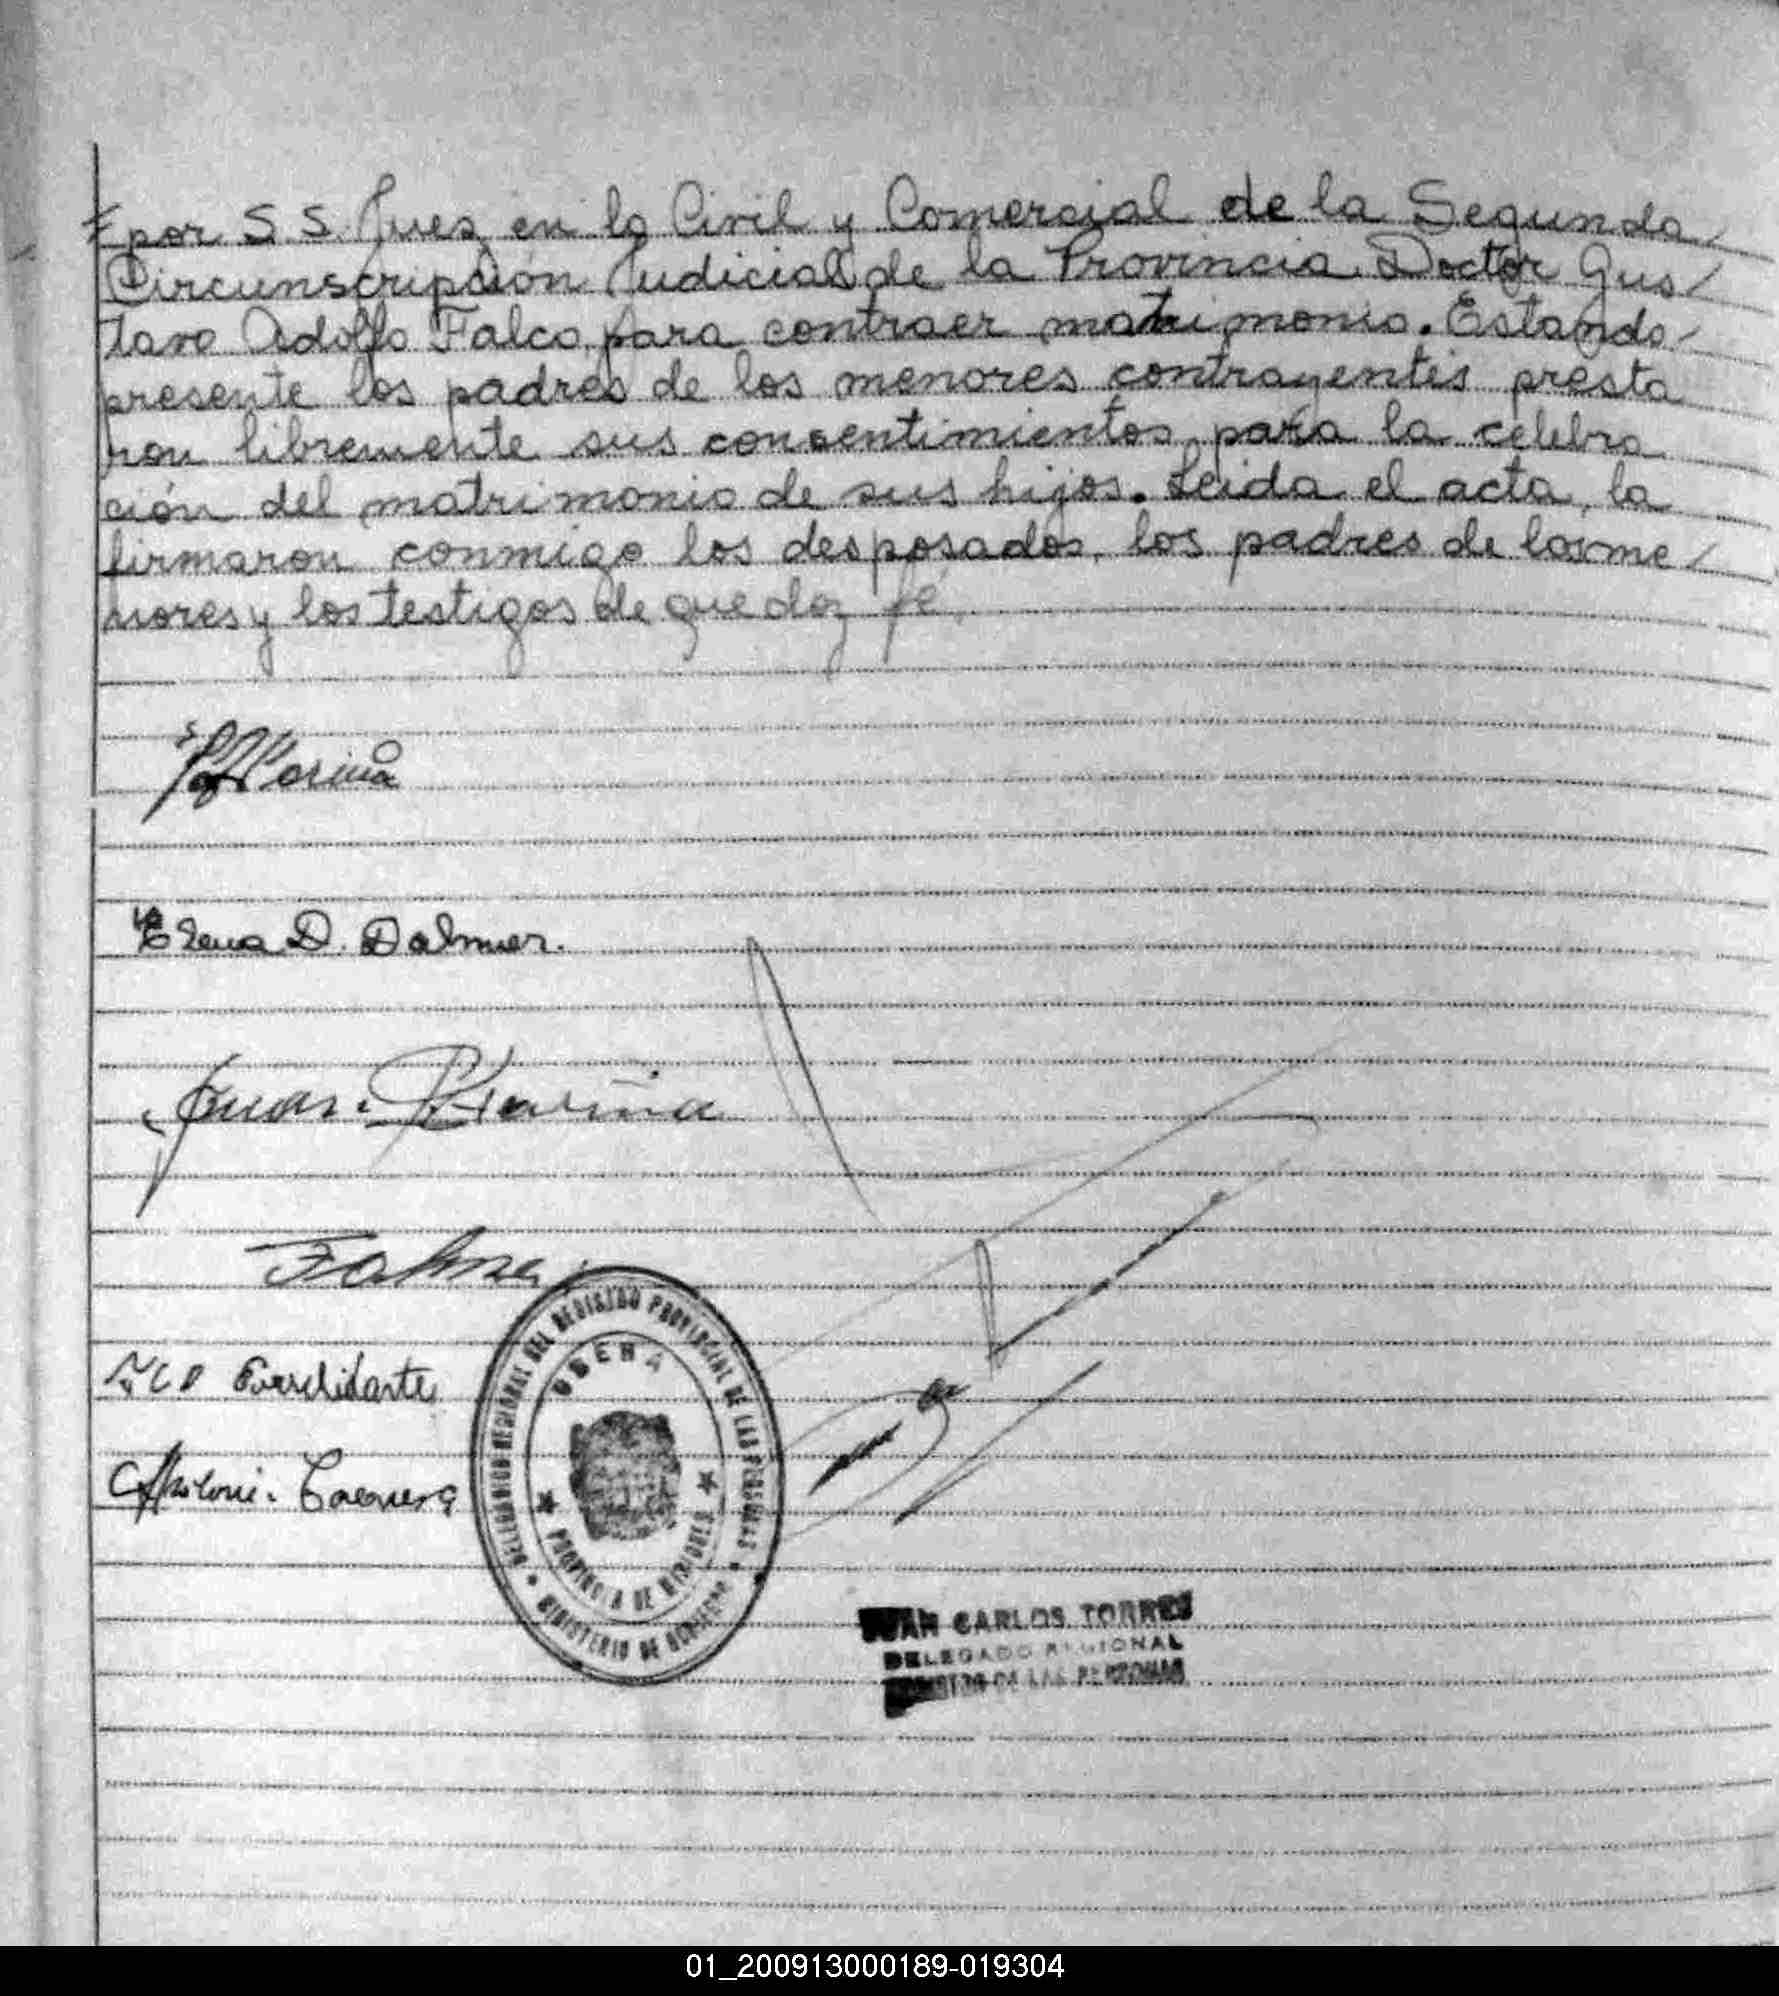 por S.S. Juez en lo Civil y Comercial de la Segunda/
Circunscripción Judicial de la Provincia Doctor Gus/
tavo Adolfo Falco para contraer matrimonio. Estando/
presente los padres de los menores contrayentes presta
ron libremente sus consentimientos para la celebra
ción del matrimonio de sus hijos. Leida el acta, la
firmaron conmigo los desposados, los padres de los me/
nores y los testigos de que doy fé.
Elena D. Dalmer.
Juan
OBERA
DELEGACION REGIONAL DEL REGISTRO PROVINCIAL DE LAS PERSONAS
PROVINCIA DE MISIONES
MINISTERIO DE GOBIERNO
JUAN CARLOS TORRES
DELEGADO REGIONAL
REGISTRO DE LAS PERSONAS
01_200913000189-019304